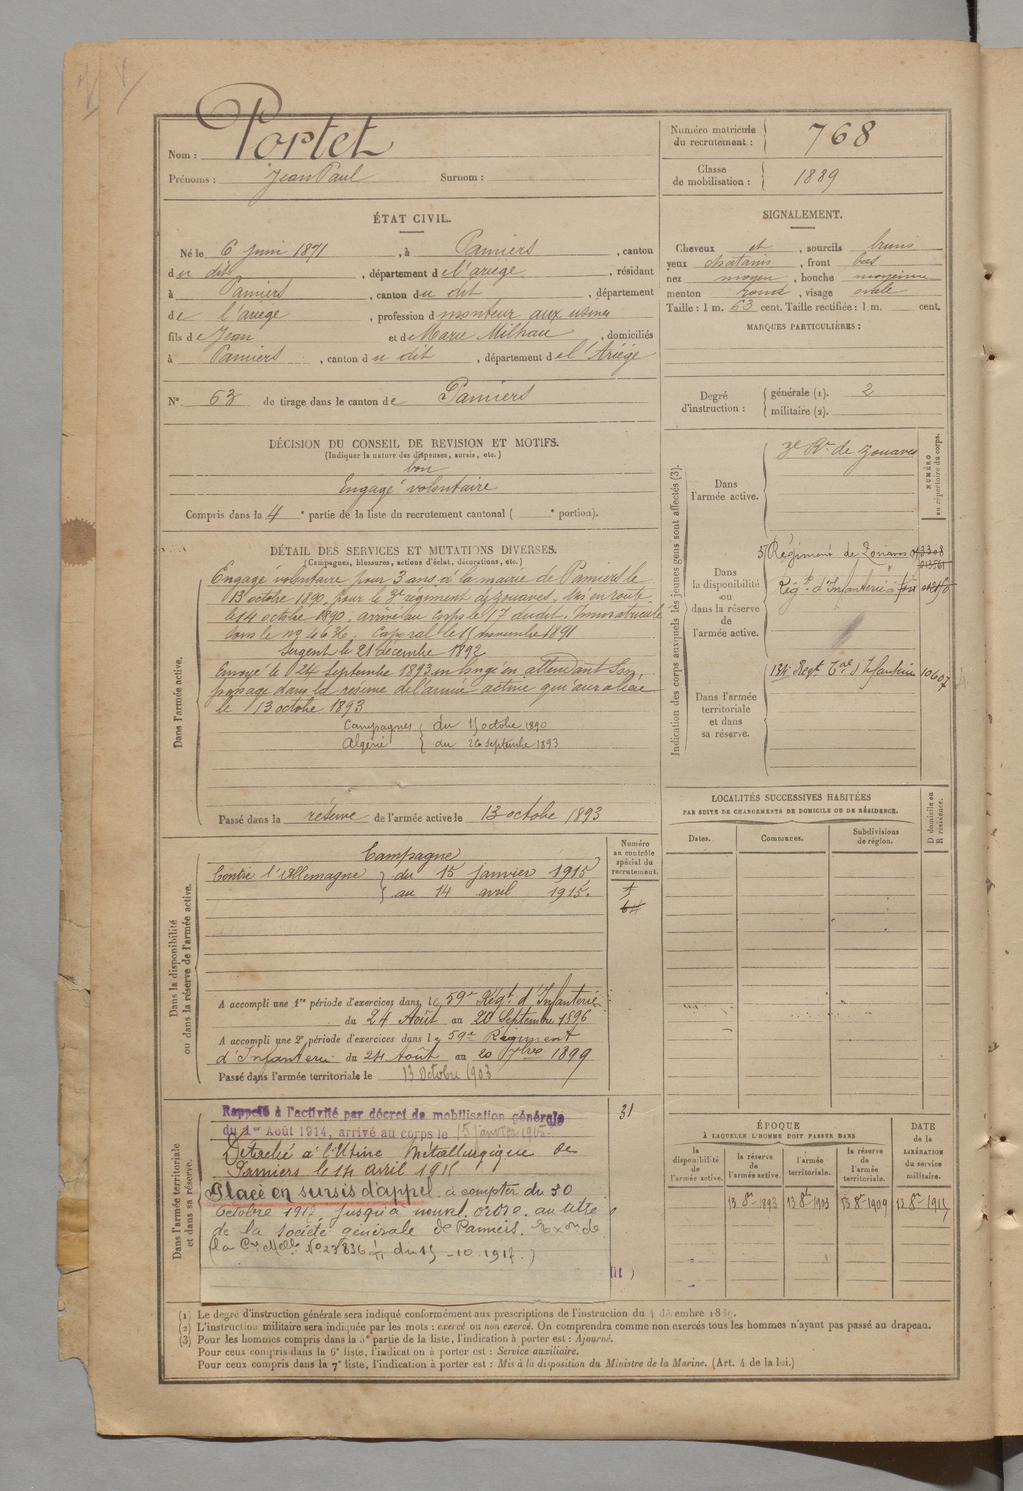 Nom : Portet
Prénoms : Jean Paul Surnom :
ÉTAT CIVIL.
Né le 6 juin 1871, à Pamiers, canton
du dit, département de l'ariège, résidant
à Pamiers, canton du dit, département
de l'ariège, profession de monteur aux usines
fils de Jean et de Marie Milhau, domiciliés
à Pamiers, canton du dit, département de l'Ariège
N° 63 de tirage dans le canton de Pamiers
DÉCISION DU CONSEIL DE REVISION ET MOTIFS.
(Indiquer la nature des dispenses, sursis, etc.)
bon
Engagé volontaire
Compris dans la 4e partie de la liste du recrutement cantonal ( e portion).
DÉTAIL DES SERVICES ET MUTATIONS DIVERSES.
(Campagnes, blessures, actions d'éclat, décorations, etc.)
Dans l'armée active.
Engagé volontaire pour 3 ans à la mairie de Pamiers le
13 octobre 1890, pour le 3e régiment de zouaves. Mis en route
le 14 octobre 1890, arrivé au corps le 17 dudit. Immatriculé
sous le no 4636. Caporal le 15 novembre 1891
Sergent le 21 décembre 1892
Envoyé le 24 septembre 1893 en congé en attendant son
passage dans la réserve de l'armée active qui aura lieu
le 13 octobre 1893
Campagnes du 15 octobre 1890
Algérie au 26 septembre 1893
Passé dans la réserve de l'armée active le 13 octobre 1893
Dans la disponibilité
ou dans la réserve de l'armée active.
Numéro
au contrôle
spécial du
recrutement.
Campagne
Contre l'Allemagne du 15 janvier 1915
au 14 avril 1915.
A accompli une 1re période d'exercices dans le 59e Régt d'Infanterie
du 24 Août au 20 Septembre 1896
A accompli une 2e période d'exercices dans le 59e Régiment
d'Infanterie du 24 Août au 20 7bre 1899
Passé dans l'armée territoriale le 13 Octobre 1903
Dans l'armée territoriale
et dans sa réserve.
31
Rappelé à l'activité par décret de mobilisation générale
du 1er Août 1914, arrivé au corps le 15 Janvier 1915.
Détaché à l'Usine Métallurgique de
Pamiers le 14 avril 1915
Placé en sursis d'appel à compter du 30
octobre 1917 jusqu'à nouvel ordre au titre
de la société générale de Pamiers.
no 23836 du 15-10-1917.)
Numéro matricule
du recrutement : 768
Classe
de mobilisation : 1889
SIGNALEMENT.
Cheveux et, sourcils bruns
yeux chatains, front bas
nez moyen, bouche moyenne
menton rond, visage ovale
Taille : 1 m. 63 cent. Taille rectifiée : 1 m. cent.
MARQUES PARTICULIÈRES :
Degré
d'instruction :
générale (1). 2
militaire (2).
Indication des corps auxquels les jeunes gens sont affectés (3).
NUMÉRO
au répertoire du corps.
Dans
l'armée active.
3e Rt de zouaves
Dans
la disponibilité
ou
dans la réserve
de
l'armée active.
Régiment de Zouaves
Régt d'Infanterie à Foix
Dans l'armée
territoriale
et dans
sa réserve.
134e Regt Tal d'Infanterie 10607
LOCALITÉS SUCCESSIVES HABITÉES
PAR SUITE DE CHANGEMENTS DE DOMICILE OU DE RÉSIDENCE.
Dates. Communes. Subdivisions
de région. D domicile ou
R résidence.
ÉPOQUE
À LAQUELLE L'HOMME DOIT PASSER DANS
DATE
de la
LIBÉRATION
du service
militaire.
la
disponibilité
de l'armée
active.
la réserve
de
l'armée active.
l'armée
territoriale.
la réserve
de
l'armée
territoriale.
13 8bre 1893 13 8bre 1903 13 8bre 1909 13 8bre 1915
(1) Le degré d'instruction générale sera indiqué conformément aux prescriptions de l'instruction du 4 décembre 1889.
(2) L'instruction militaire sera indiquée par les mots : exercé ou non exercé. On comprendra comme non exercés tous les hommes n'ayant pas passé au drapeau.
(3) Pour les hommes compris dans la 5e partie de la liste, l'indication à porter est : Ajourné.
Pour ceux compris dans la 6e liste, l'indication à porter est : Service auxiliaire.
Pour ceux compris dans la 7e liste, l'indication à porter est : Mis à la disposition du Ministre de la Marine. (Art. 4 de la loi.)